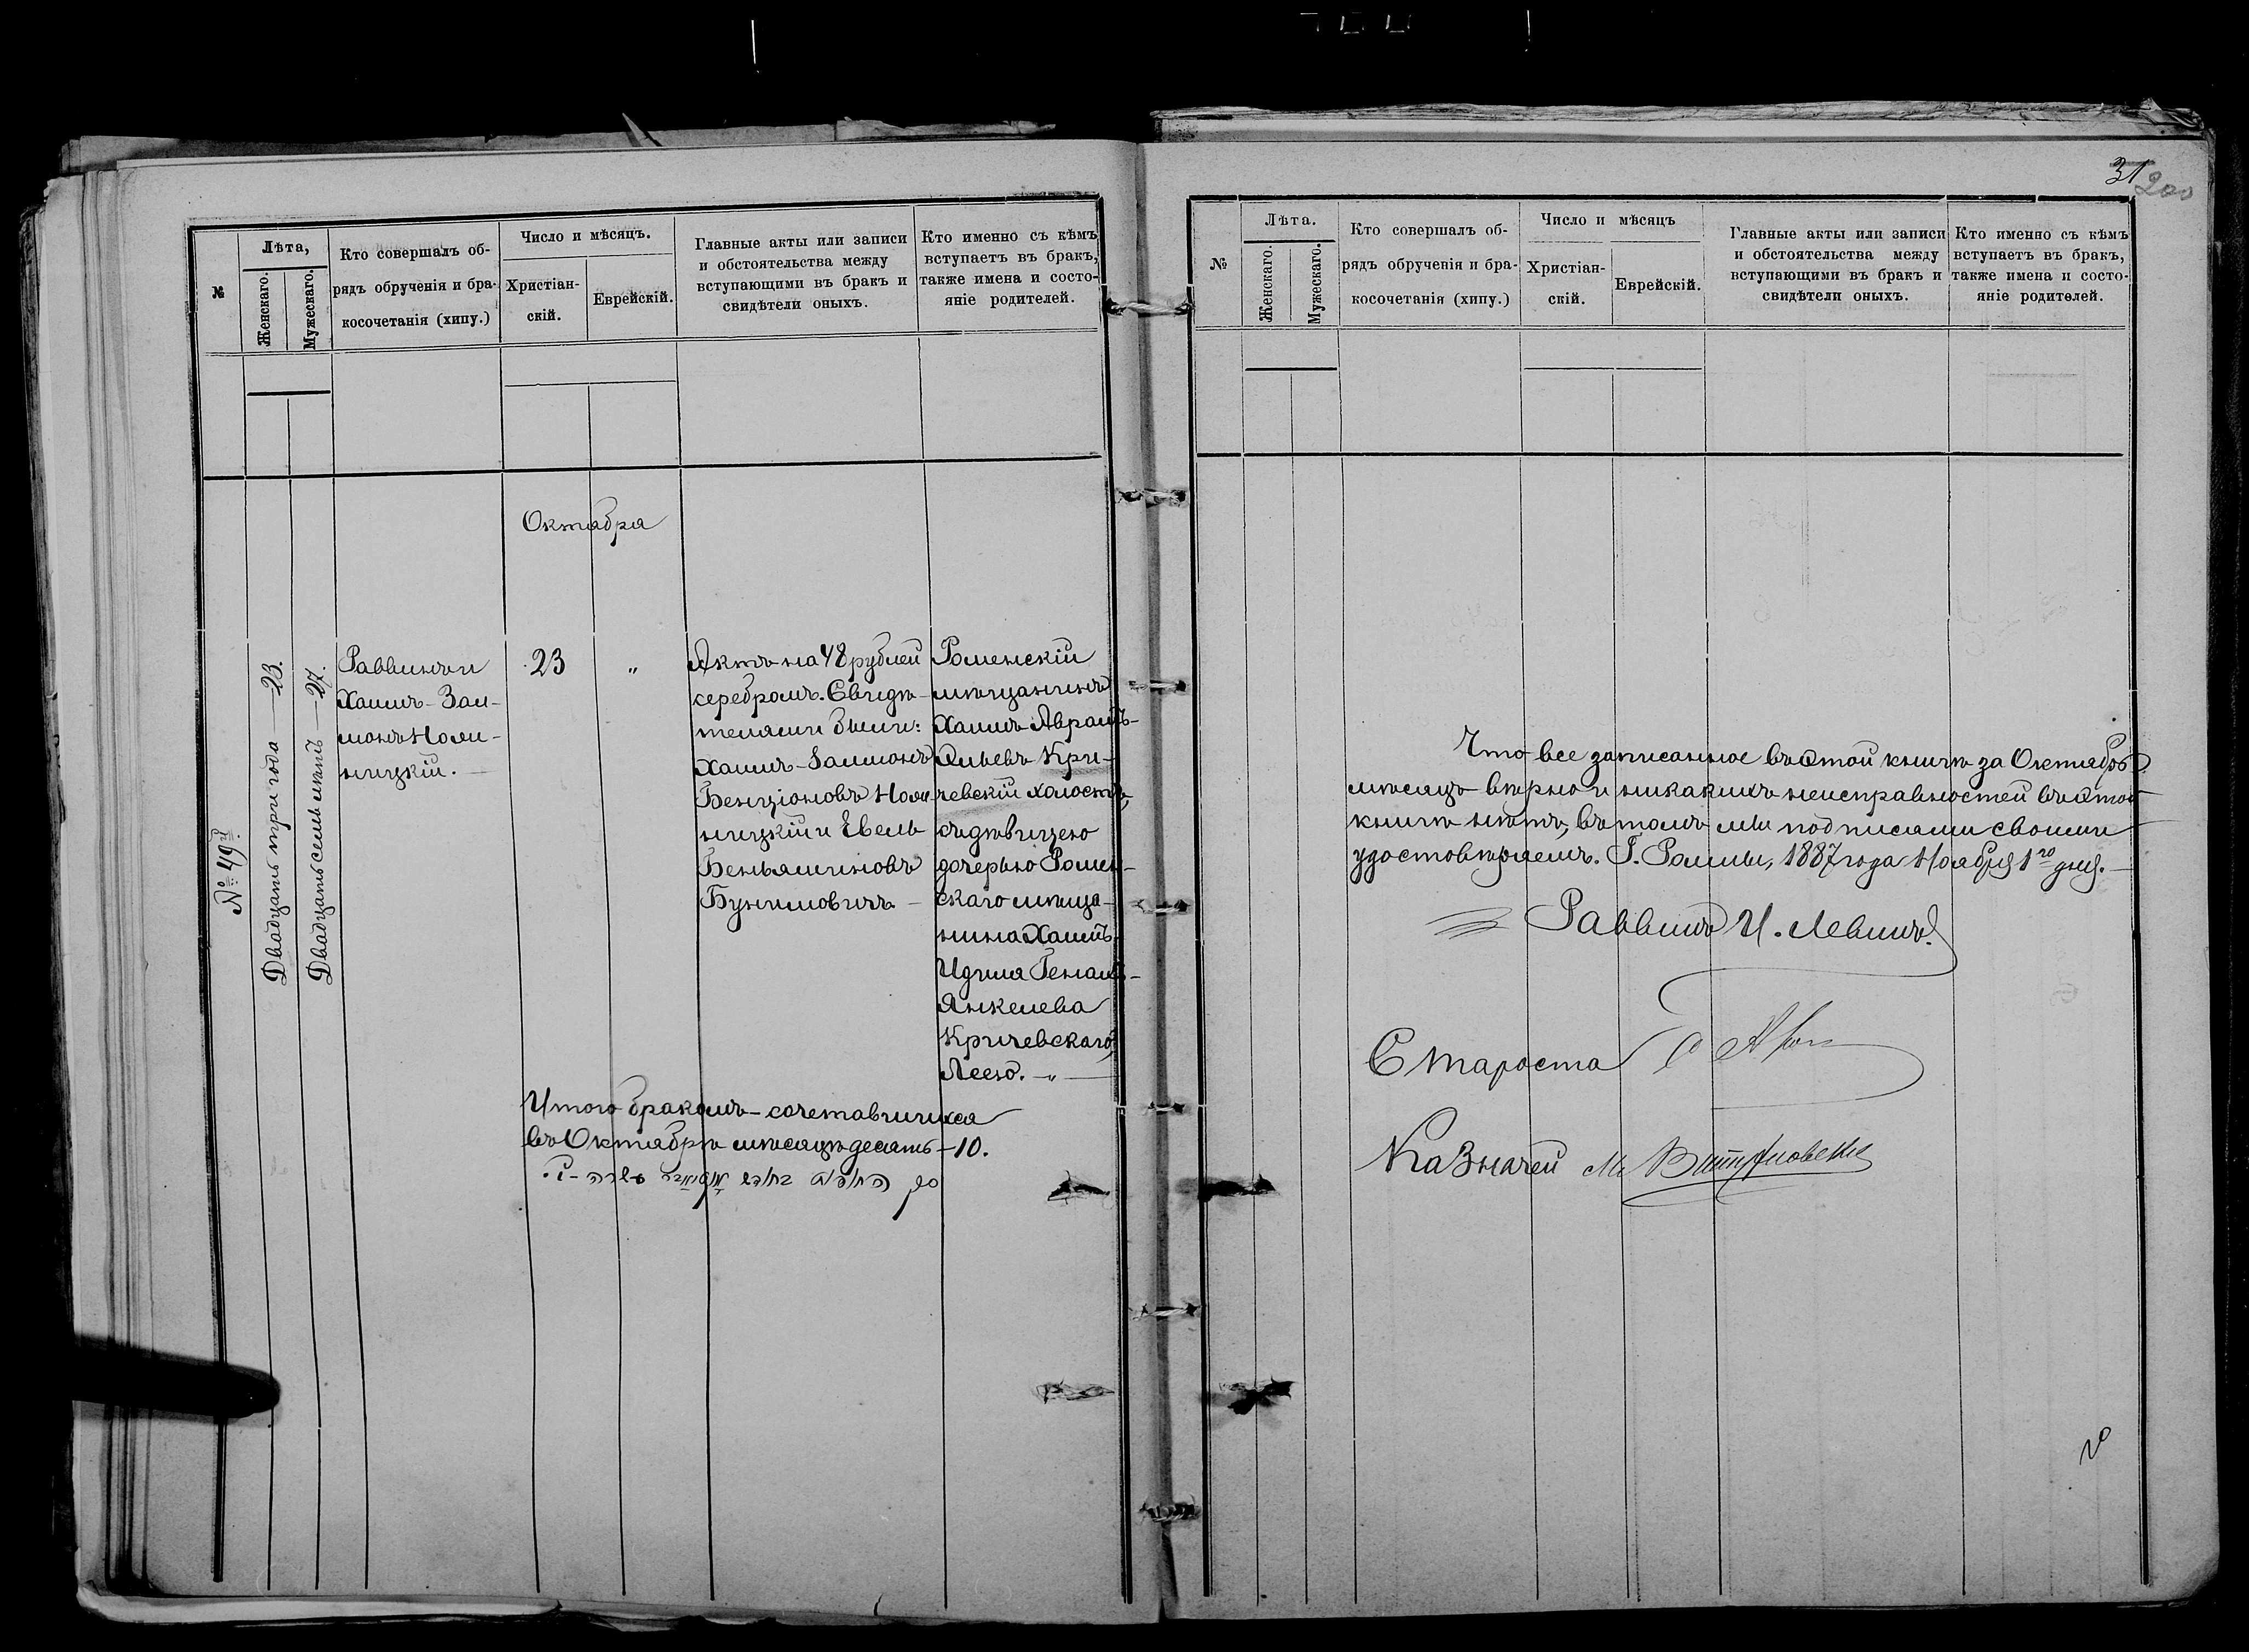 №
Лѣта,
Женскаго.
Мужескаго.
Кто совершалъ об-
рядъ обрученія и бра-
косочетанія (хипу.)
Число и мѣсяцъ.
Христіан-
скій.
Еврейскій.
Главные акты или записи
и обстоятельства между
вступающими въ бракъ и
свидѣтели оныхъ.
Кто именно съ кѣмъ
вступаетъ въ бракъ,
также имена и состо-
яніе родителей.
Октября
№ 49й
Двадцать три года — 23.
Двадцать семь лѣтъ — 27.
Раввинъ и
Хаимъ-Зал-
монъНоли-
ницкій. —
23
"
Актъ на 48 рублей
серебромъ. Свидѣ-
телями были:
Хаимъ-Залмонъ
Бенціоновъ Ноли-
ницкій и Евель
Беньяминовъ
Бунимовичъ —
Роменскій
мѣщанинъ
Хаимъ Аврамъ-
Яльевъ Кри-
чевскій холостъ,
съ дѣвицею
дочерью Ромен-
скаго мѣща-
нина Хаимъ-
Идиля
Янкелева
Кричевскаго,
Леею. — " —
Итого бракомъ-сочетавшихся
въ Октябрѣ мѣсяцѣ десять — 10.
31
200
№
Лѣта.
Женскаго.
Мужескаго.
Кто совершалъ об-
рядъ обрученія и бра-
косочетанія (хипу.)
Число и мѣсяцъ
Христіан-
скій.
Еврейскій.
Главные акты или записи
и обстоятельства между
вступающими въ бракъ и
свидѣтели оныхъ.
Кто именно съ кѣмъ
вступаетъ въ бракъ,
также имена и состо-
яніе родителей.
Что все записанное въ этой книгѣ за Октябрь
мѣсяцъ вѣрно и никакихъ неисправностей въ этой
книгѣ нѣтъ, въ томъ мы подписами своими
удостовѣряемъ. Г. Ромны, 1887 года Ноября 1го дня. —
Раввинъ И. Левинъ.
Староста
Казначей М